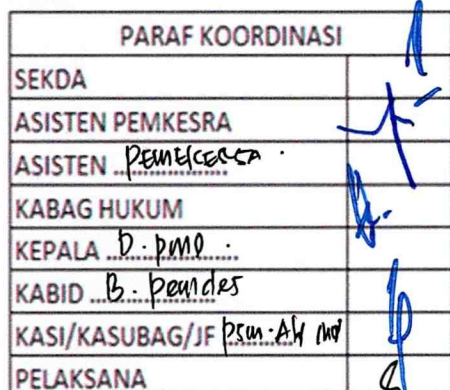 PARAF KOORDINASI
SEKDA
ASISTEN PEMKESRA
ASISTEN
KABAG HUKUM
KEPALA D. pmd.
KABID B. pemdes
KASI/KASUBAG/JF psm. Ah
PELAKSANA